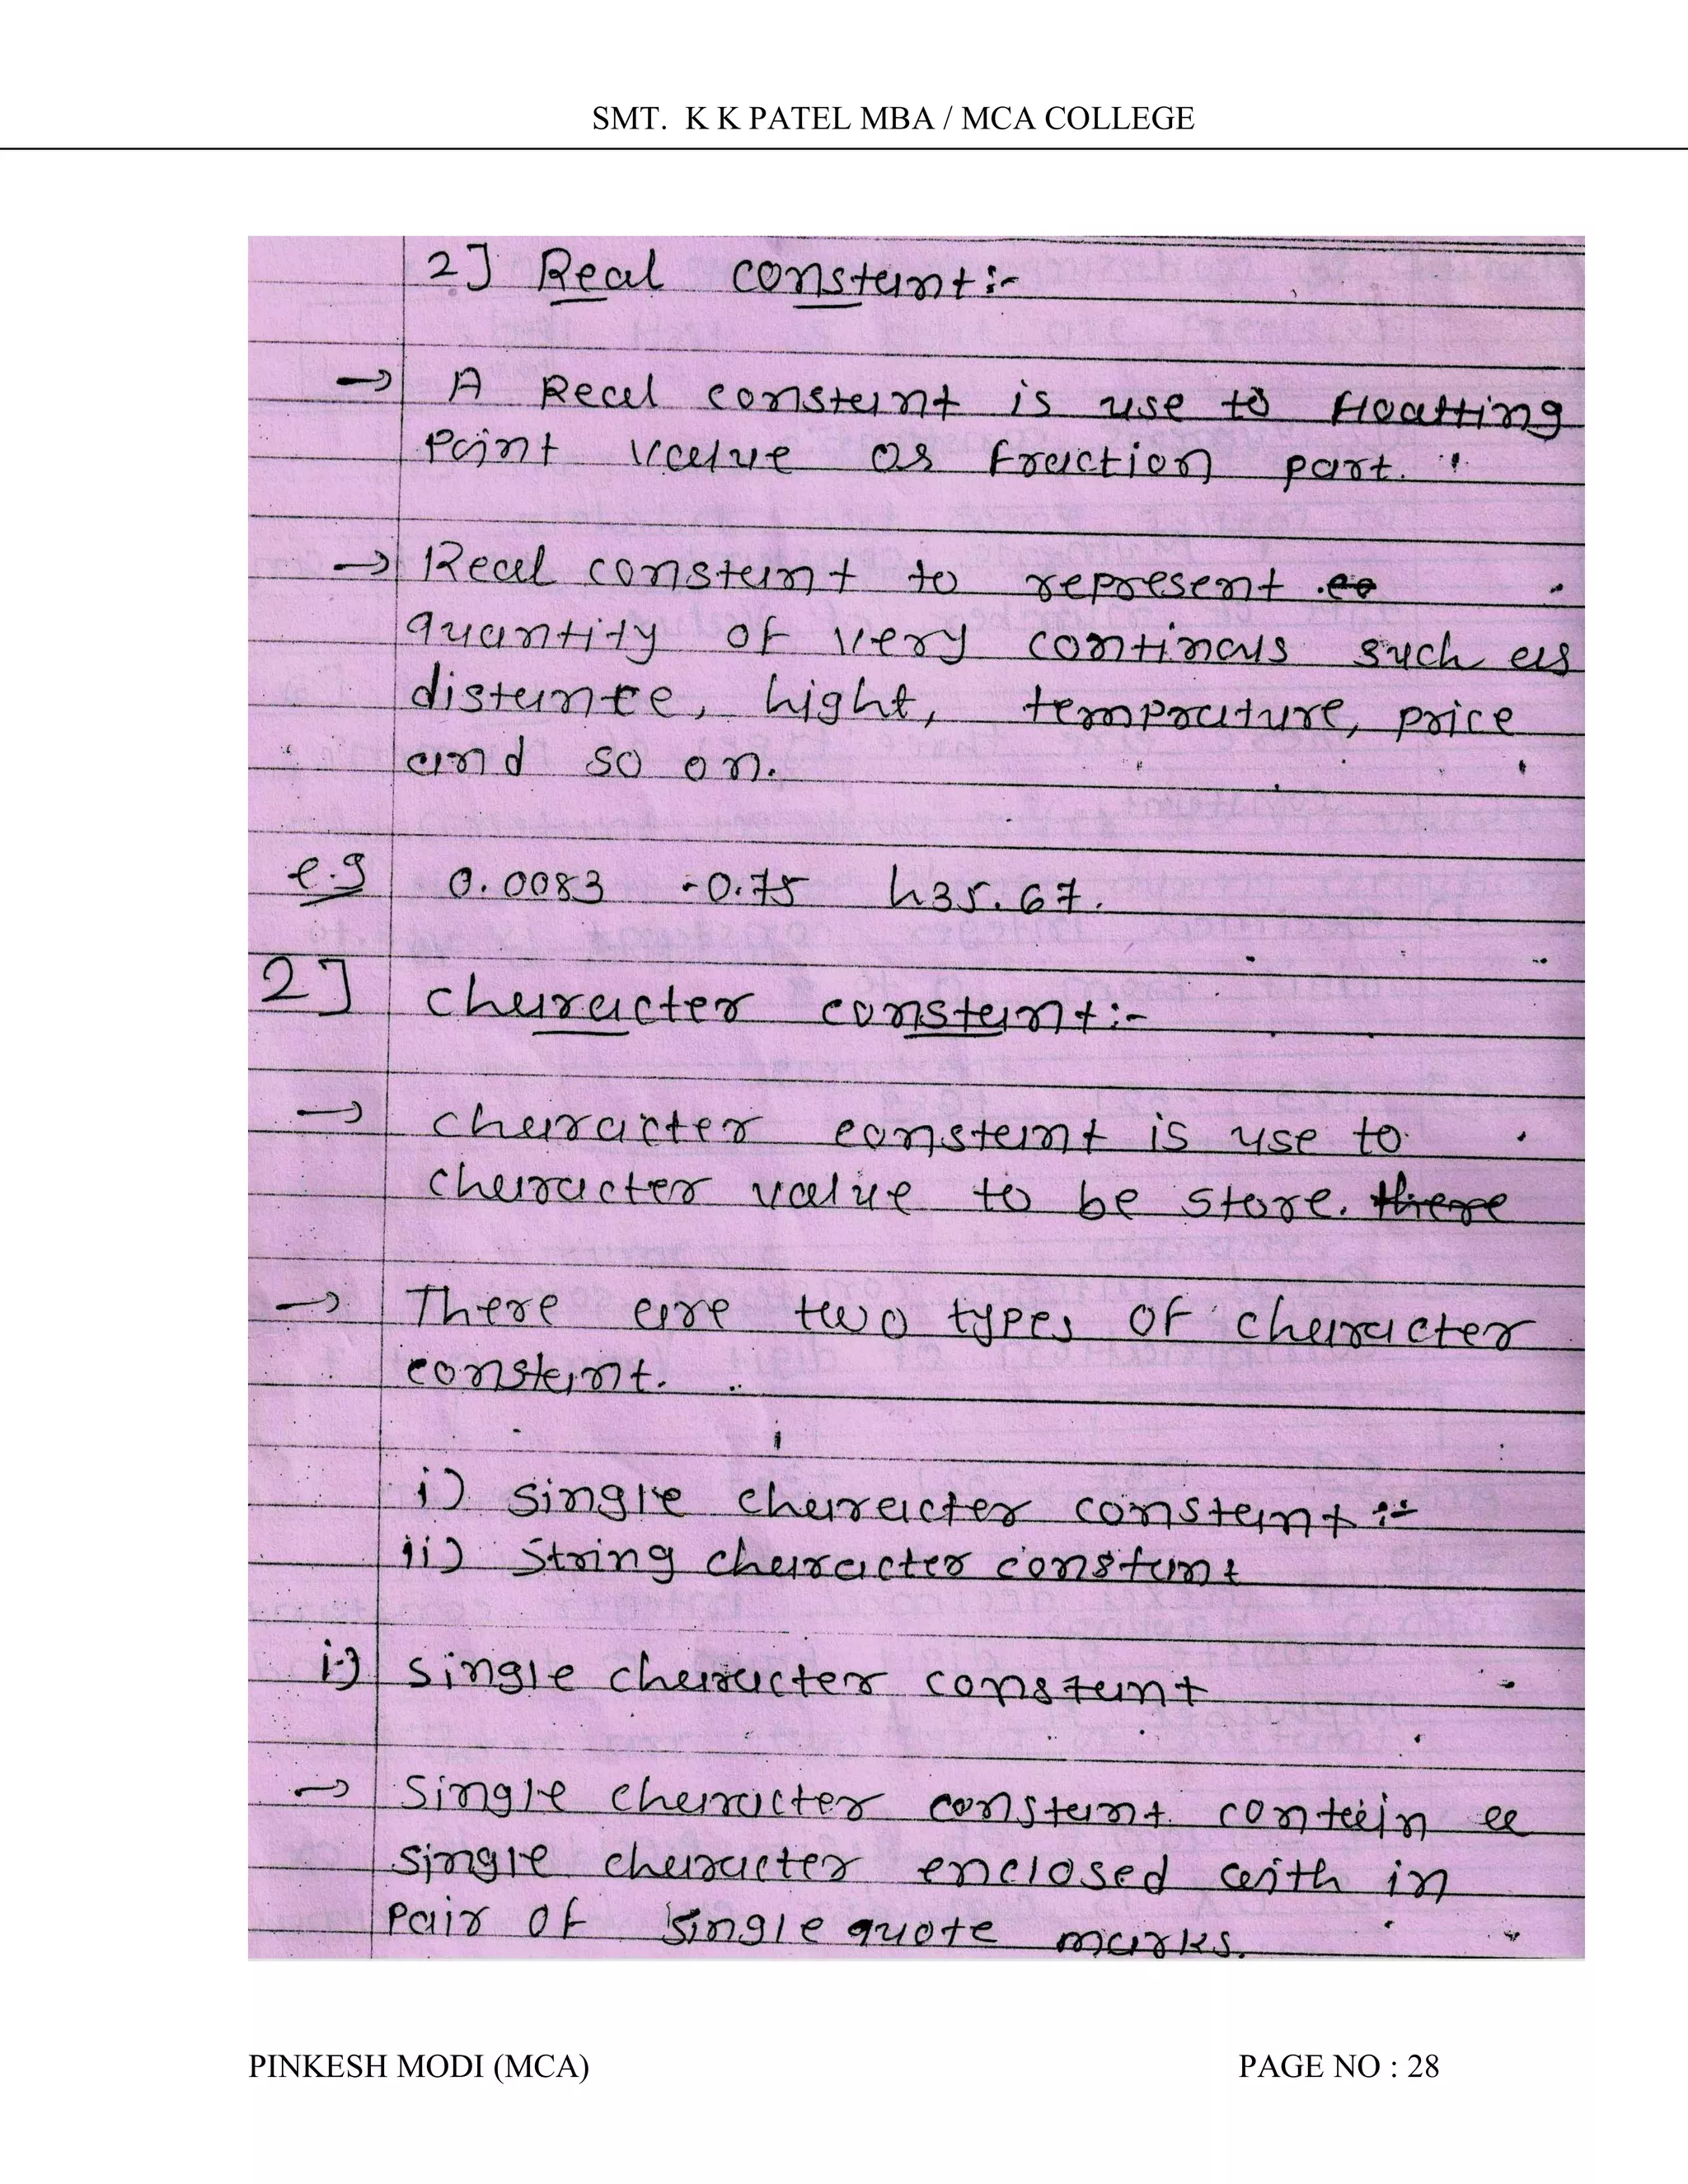 SMT. K K PATEL MBA / MCA COLLEGE
2] Real constant:-
→ A Real constant is use to floatting
point value as fraction part.
→ Real constant to represent
quantity of very continous such as
distance, hight, temprature, price
and so on.
e.g 0.0083 -0.75 435.67.
2] character constant:-
→ character constant is use to
character value to be store. there
→ There are two types of character
constant.
i) single character constant :-
ii) String character constant
i) single character constant
→ Single character constant contain a
single character enclosed with in
pair of single quote marks.
PINKESH MODI (MCA) PAGE NO : 28